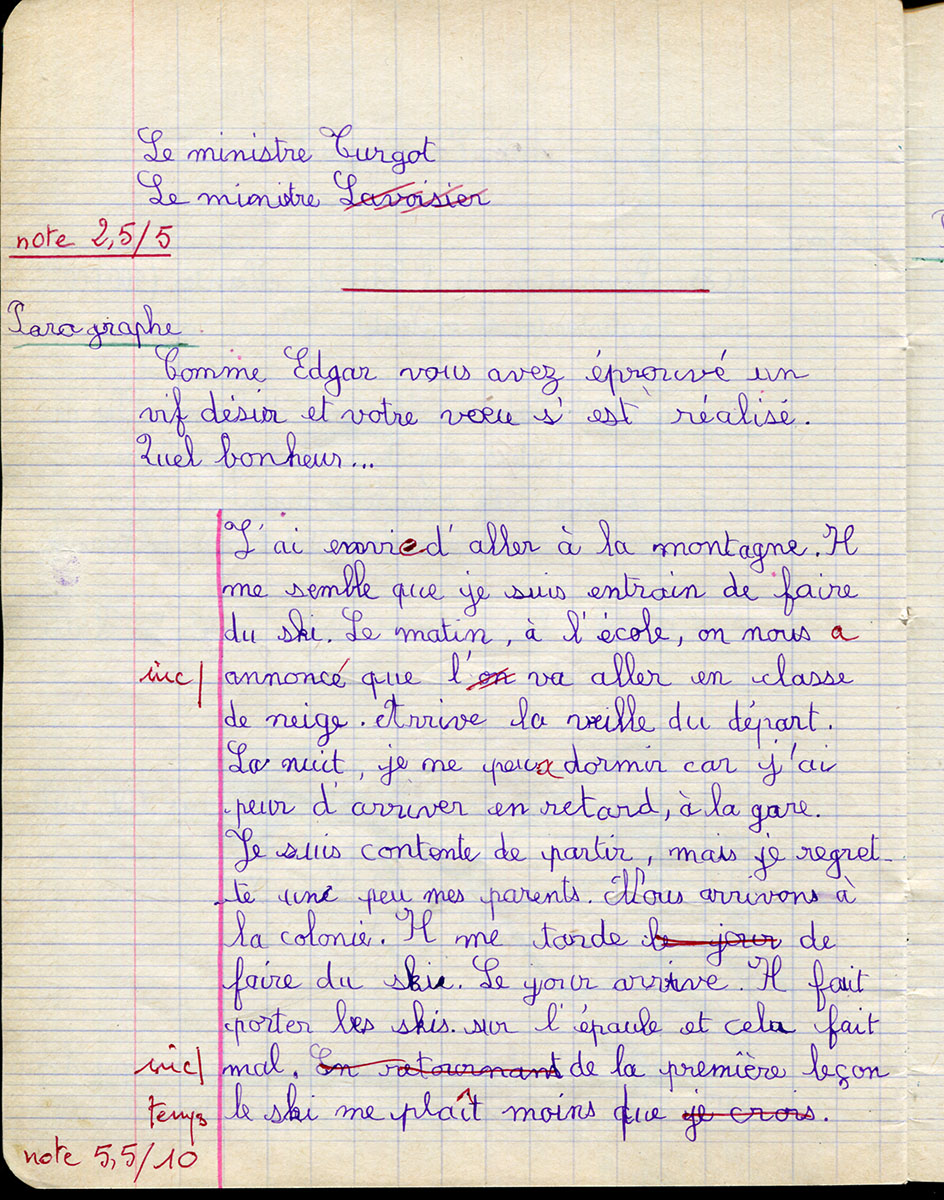 Le ministre Turgot
Le minitre Lavoisier
note 2,5/5
Paragraphe
Comme Edgar vous avez éprouvé un
vif désir et votre voeu s'est réalisé.
Quel bonheur...
J'ai envie d'aller à la montagne. Il
me semble que je suis entrain de faire
du ski. Le matin, à l'école, on nous a
inc| annoncé que l'on va aller en classe
de neige. Arrive la veille du départ.
La nuit, je me peux dormir car j'ai
peur d'arriver en retard, à la gare.
Je suis contente de partir, mais je regret-
te une peu mes parents. Nous arrivons à
la colonie. Il me tarde le jour de
faire du ski. Le jour arrive. Il fait
porter les skis sur l'épaule et cela fait
inc| mal. En retournant de la première leçon
temps le ski me plaît moins que je crois.
note 5,5/10